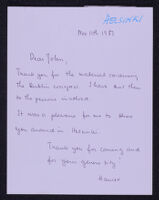 HELSINKI
Nov 11th 1987
Dear John,
Thank you for the material concerning
the Dublin congress. I have sent them
to the persons involved.
It was a pleasure for me to show
you around in Helsinki.
Thank you for coming and
for your generosity!